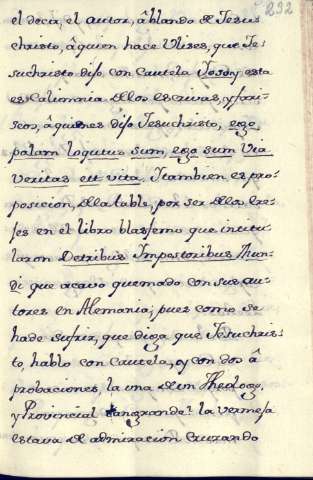 232
el decir, el autor, ablando de Jesu-
christo, âquien hace Ulises, que Je-
suchristo dijo con Cautela Yosoy esta
es Calumnia delos escrivas, y fari-
seos, âquienes dijo Jesuchristo, ego
palam loqutus sum, ego sum Via
Veritas ett vita. Tcambien es pro-
posicion, detestable, por ser delos Ere-
jes en el libro blasfemo que intitu-
laron Detribus Impostoribus Mun-
di que acavo quemado con sus au-
tores en Alemania; pues como se
hade sufrir, que diga que Jesuchris-
to, hablo con Cautela, y con dos â
probaciones, la una deun Theologo,
y Provincial tangrande? la vermeja
estava de admiracion cruzando